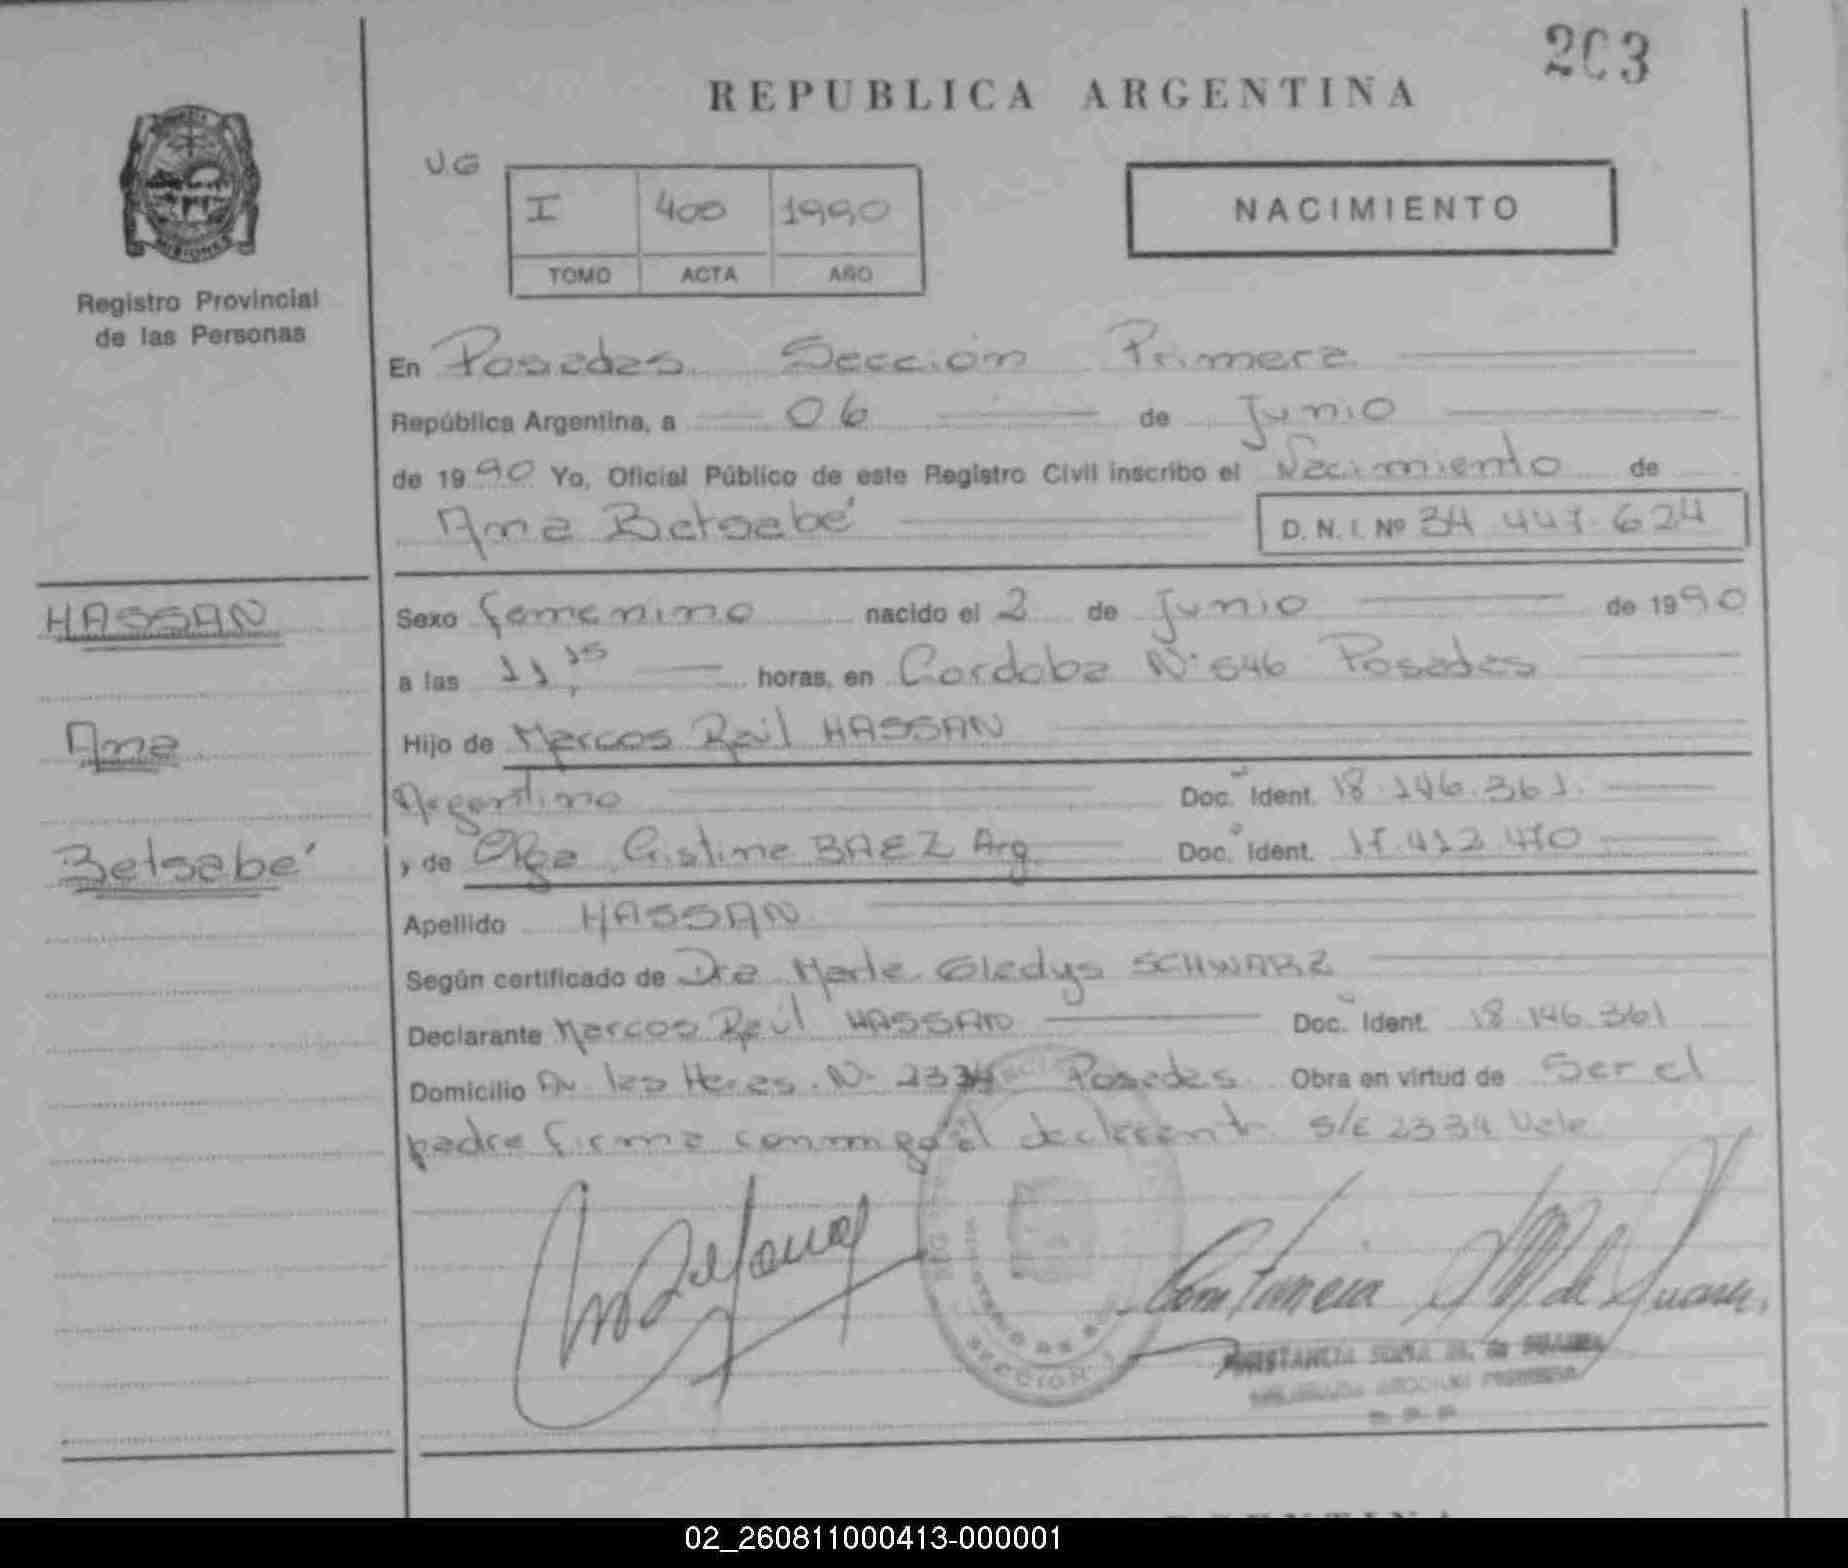 203
REPUBLICA ARGENTINA
UG
I 400 1990
TOMO ACTA AÑO
NACIMIENTO
Registro Provincial
de las Personas
En Posadas Sección Primera
República Argentina, a 06 de Junio
de 1990 Yo, Oficial Público de este Registro Civil inscribo el Nacimiento de
Ana Betsabé D. N. I. Nº 34.447.624
HASSAN
Ana
Betsabé
Sexo femenino nacido el 2 de Junio de 1990
a las 11,15 horas, en Cordoba Nº 546 Posadas
Hijo de Marcos Raúl HASSAN
Argentino Doc. Ident. 18.146.361.
y de Olga Cristina BAEZ Arg. Doc. Ident. 17.412.470
Apellido HASSAN
Según certificado de Dra Marta Gladys SCHWARZ
Declarante Marcos Raúl HASSAN Doc. Ident. 18.146.361
Domicilio Av. las Heras Nº 2334 Posadas Obra en virtud de Ser el
padre firma conmigo el declarante S/E 2334 Vale
SECCION 1
Constancia M. de
M. de
02_260811000413-000001